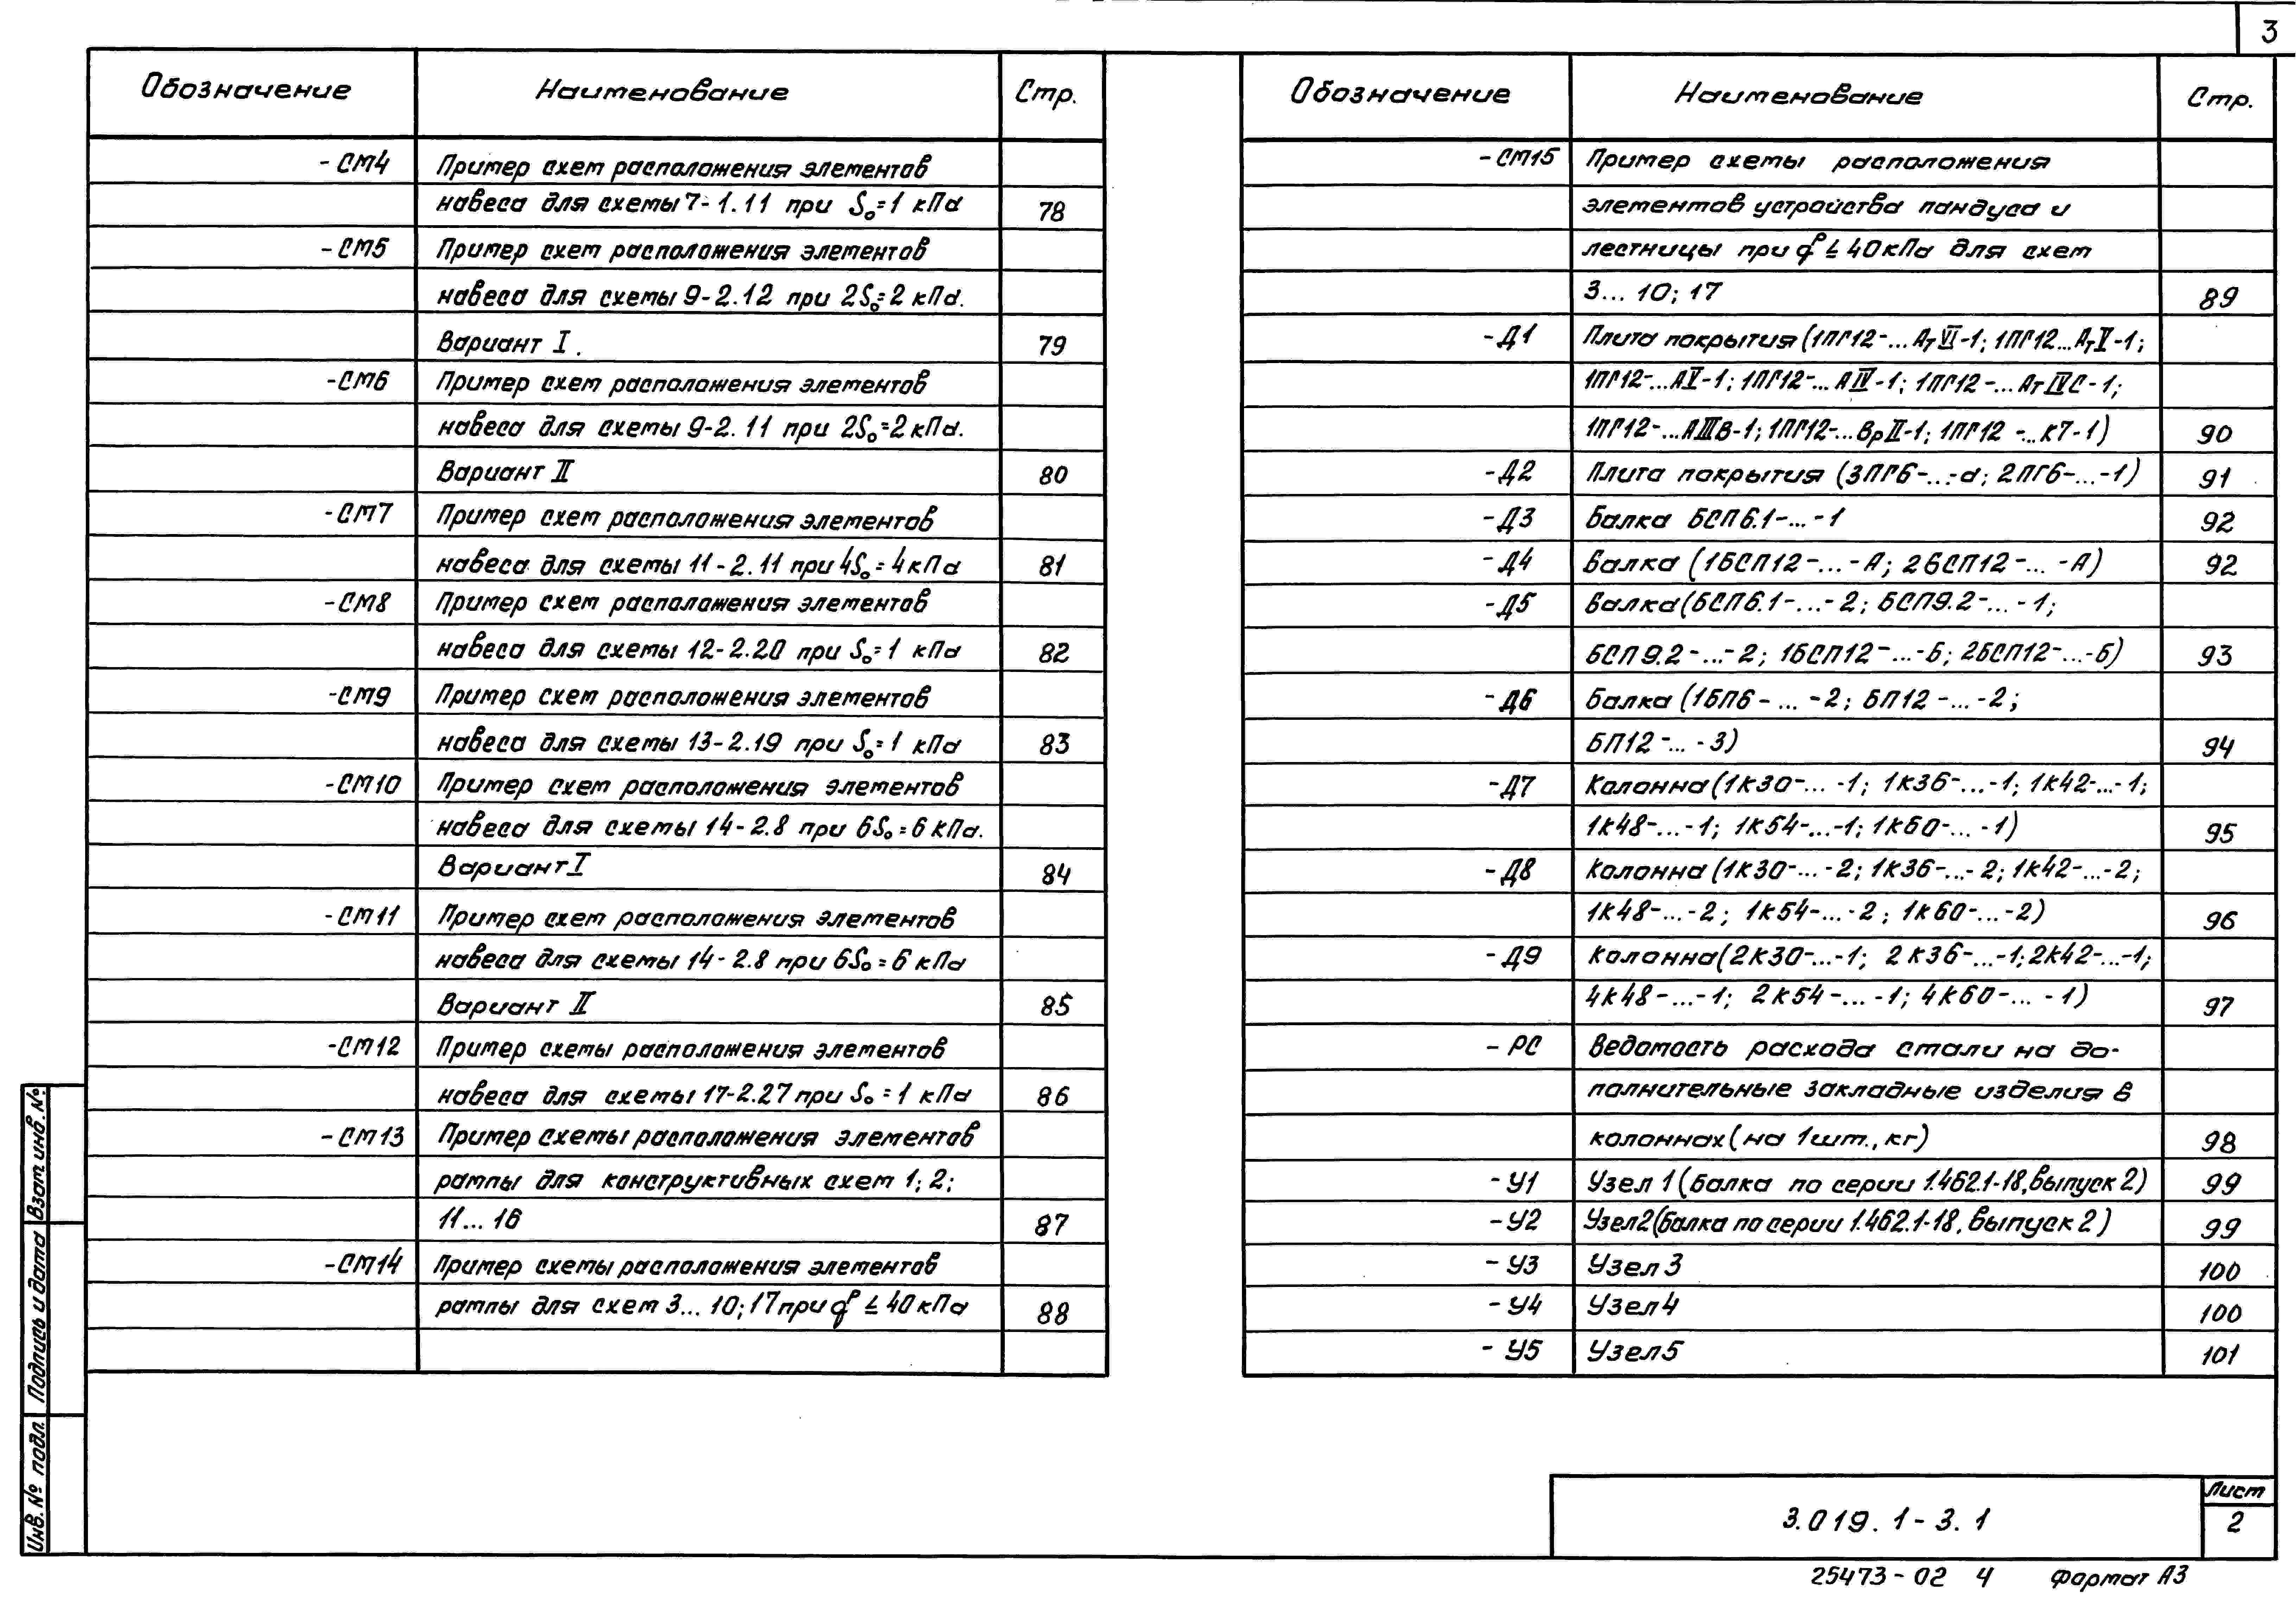 3
Обозначение Наименование Стр.
-СМ4 Пример схем расположения элементов
навеса для схемы 7-1.11 при S₀=1 кПа 78
-СМ5 Пример схем расположения элементов
навеса для схемы 9-2.12 при 2S₀=2 кПа.
Вариант I. 79
-СМ6 Пример схем расположения элементов
навеса для схемы 9-2.11 при 2S₀=2кПа.
Вариант II 80
-СМ7 Пример схем расположения элементов
навеса для схемы 11-2.11 при 4S₀=4кПа 81
-СМ8 Пример схем расположения элементов
навеса для схемы 12-2.20 при S₀=1 кПа 82
-СМ9 Пример схем расположения элементов
навеса для схемы 13-2.19 при S₀=1 кПа 83
-СМ10 Пример схем расположения элементов
навеса для схемы 14-2.8 при 6S₀=6 кПа.
Вариант I 84
-СМ11 Пример схем расположения элементов
навеса для схемы 14-2.8 при 6S₀=6 кПа
Вариант II 85
-СМ12 Пример схемы расположения элементов
навеса для схемы 17-2.27 при S₀=1 кПа 86
-СМ13 Пример схемы расположения элементов
рампы для конструктивных схем 1; 2;
11...16 87
-СМ14 Пример схемы расположения элементов
рампы для схем 3...10; 17 при qᵖ ≤ 40кПа 88
Обозначение Наименование Стр.
-СМ15 Пример схемы расположения
элементов устройства пандуса и
лестницы при qᵖ ≤ 40кПа для схем
3...10; 17 89
-Д1 Плита покрытия (1ПГ12-...АтVI-1; 1ПГ12...АтV-1;
1ПГ12-...АV-1; 1ПГ12-...АIV-1; 1ПГ12-...АтIVС-1;
1ПГ12-...АIIIВ-1; 1ПГ12-...ВрII-1; 1ПГ12-...К7-1) 90
-Д2 Плита покрытия (3ПГ6-...-а; 2ПГ6-...-1) 91
-Д3 Балка БСП6.1-...-1 92
-Д4 Балка (1БСП12-...-А; 2БСП12-...-А) 92
-Д5 Балка (БСП6.1-...-2; БСП9.2-...-1;
БСП9.2-...-2; 1БСП12-...-Б; 2БСП12-...-Б) 93
-Д6 Балка (1БП6-...-2; БП12-...-2;
БП12-...-3) 94
-Д7 Колонна (1К30-...-1; 1К36-...-1; 1К42-...-1;
1К48-...-1; 1К54-...-1; 1К60-...-1) 95
-Д8 Колонна (1К30-...-2; 1К36-...-2; 1К42-...-2;
1К48-...-2; 1К54-...-2; 1К60-...-2) 96
-Д9 Колонна (2К30-...-1; 2К36-...-1; 2К42-...-1;
4К48-...-1; 2К54-...-1; 4К60-...-1) 97
-РС Ведомость расхода стали на до-
полнительные закладные изделия в
колоннах (на 1шт., кг) 98
-У1 Узел 1 (Балка по серии 1.462.1-18, выпуск 2) 99
-У2 Узел 2 (Балка по серии 1.462.1-18, выпуск 2) 99
-У3 Узел 3 100
-У4 Узел 4 100
-У5 Узел 5 101
Инв. № подл. Подпись и дата Взам. инв. №
3.019.1-3.1
Лист
2
25473-02 4 Формат А3